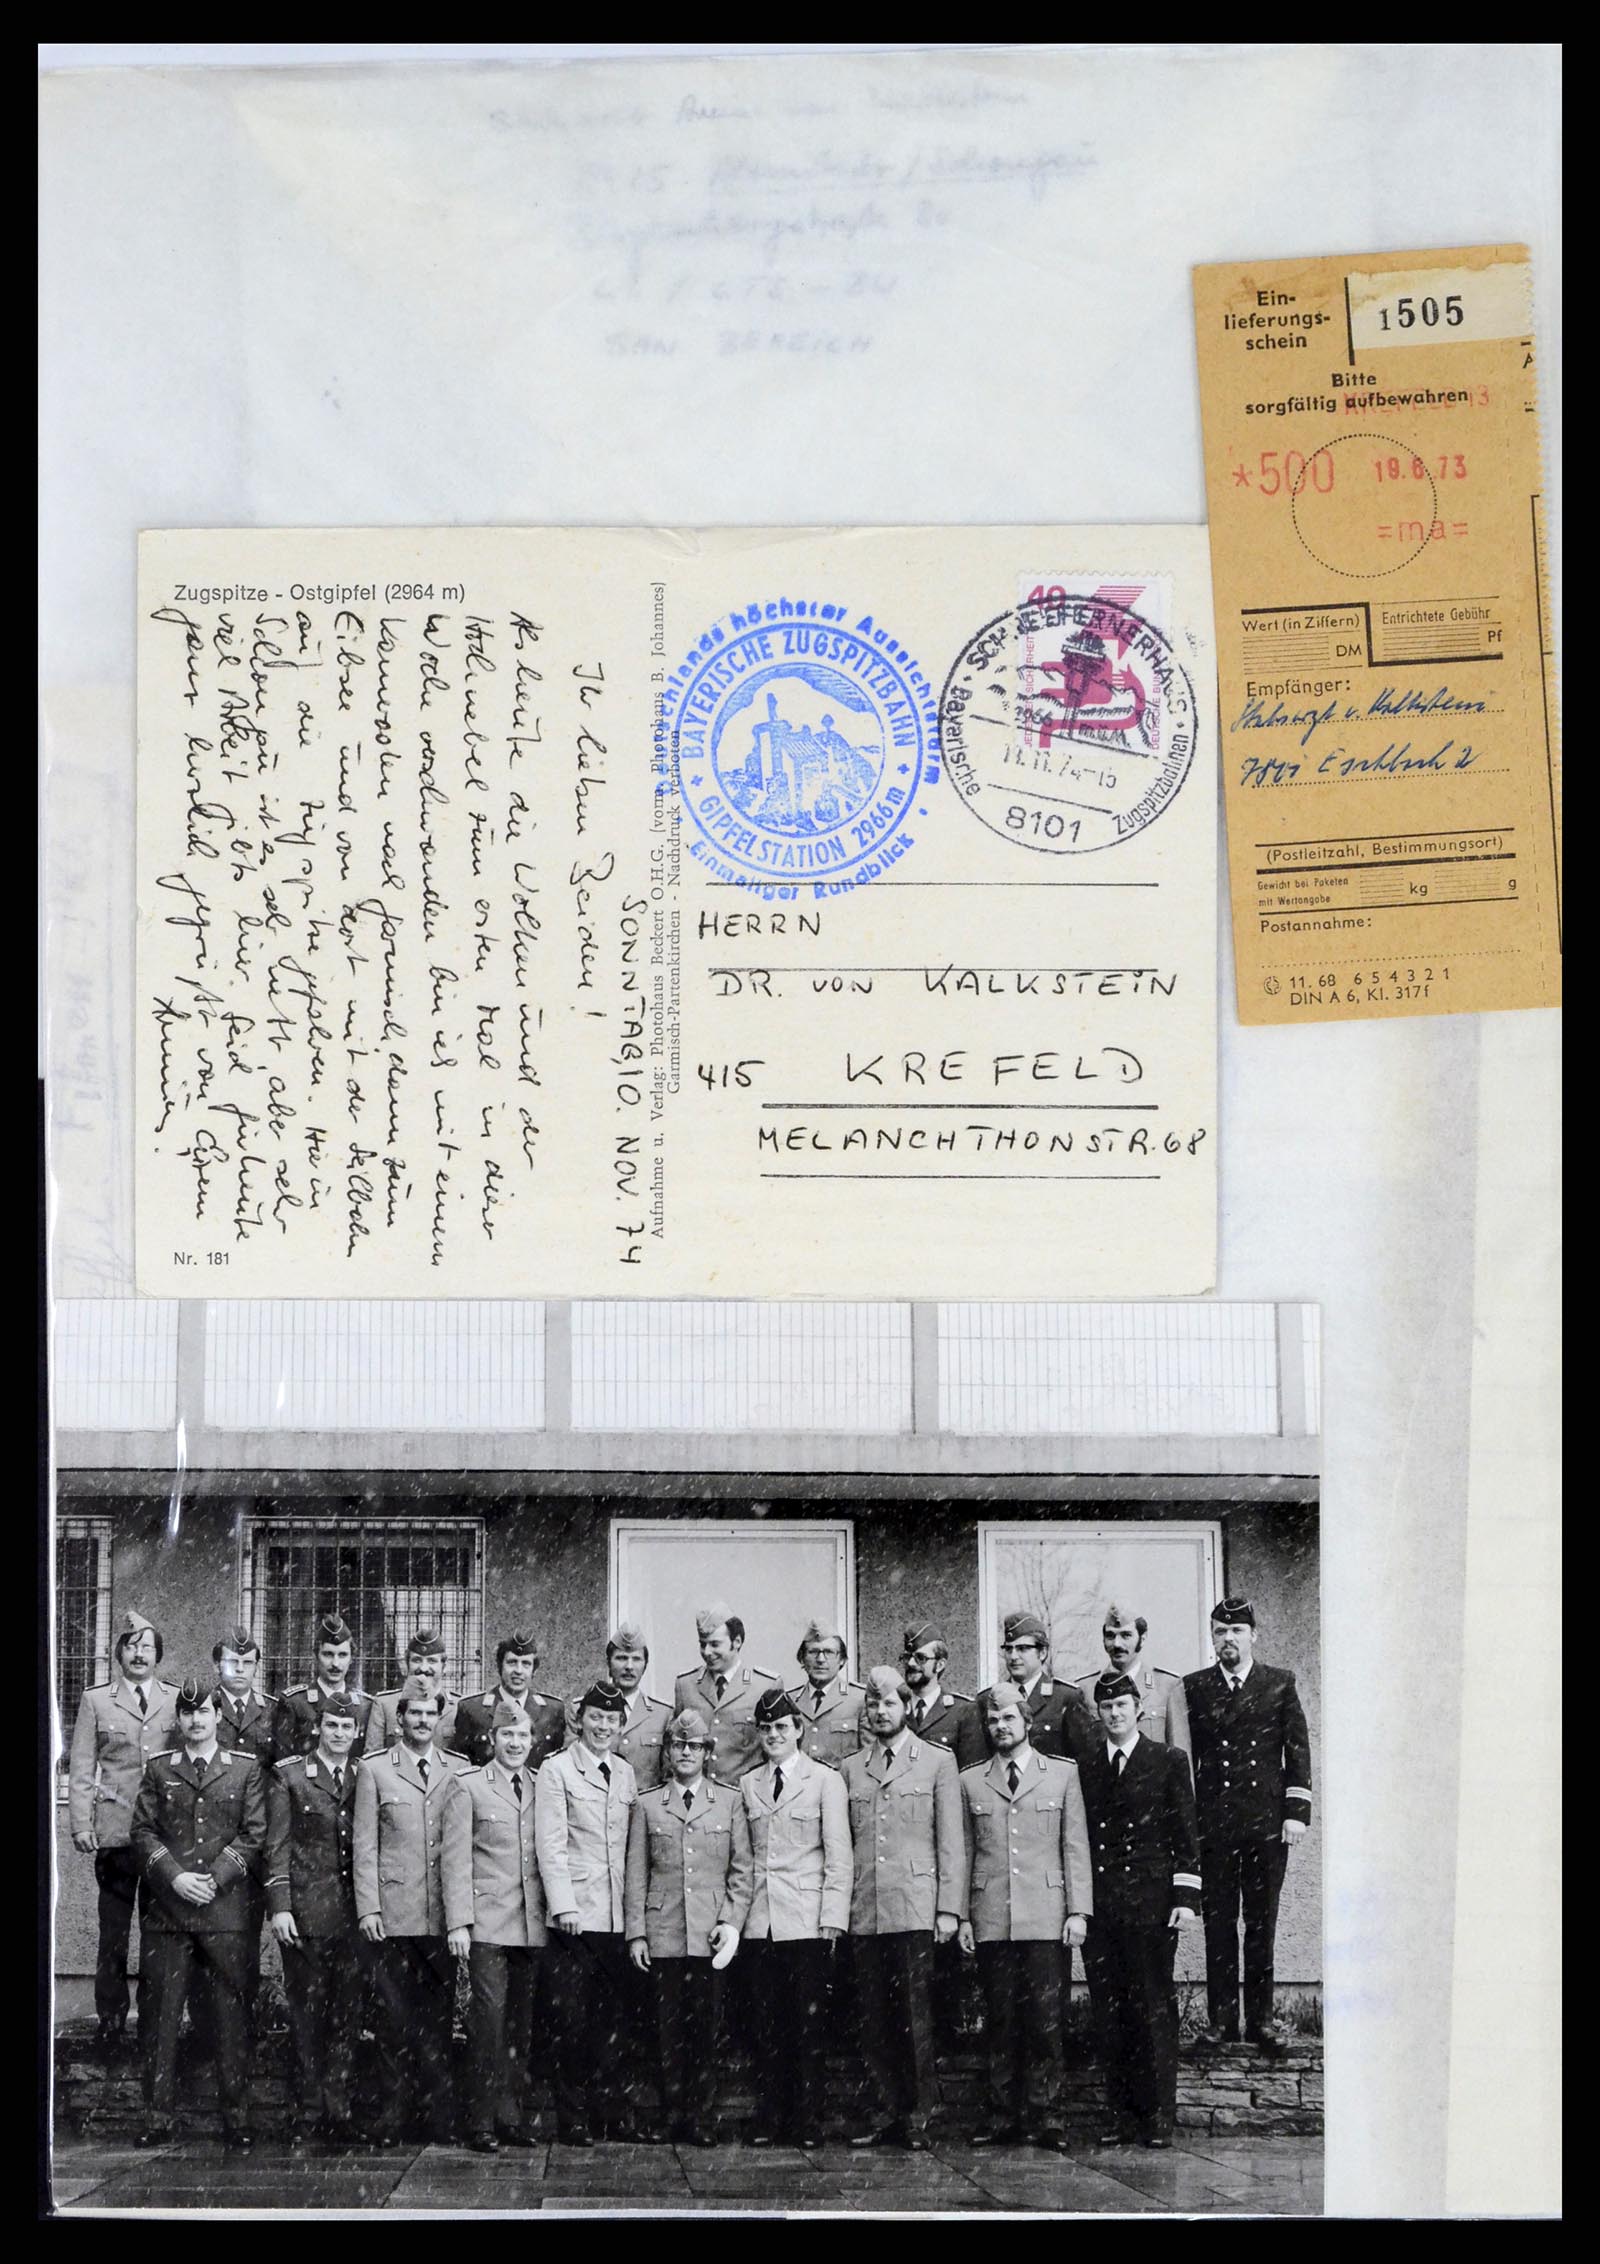 SAN BEREICH
Ein-
lieferungs-
schein
1505
Bitte
sorgfältig aufbewahren
KREFELD 13
*500 19.6.73
=ma=
Wert (in Ziffern)
DM
Entrichtete Gebühr
Pf
Empfänger:
Stabsarzt v. Kalkstein
Eschbach 2
(Postleitzahl, Bestimmungsort)
Gewicht bei Paketen
mit Wertangabe
kg g
Postannahme:
11.68 6 5 4 3 2 1
DIN A 6, Kl. 317f
Zugspitze - Ostgipfel (2964 m)
SONNTAG, 10. NOV. 74
Ihr lieben Beiden!
Als heute die Wolken und der
Hochnebel zum ersten Mal in dieser
Woche verschwanden bin ich mit einem
Kameraden nach Garmisch, dann zum
Eibsee und von dort mit der Seilbahn
auf die Zugspitze gefahren. Hier in
ist es sehr nett, aber sehr
viel Arbeit gibts hier. Seid für heute
ganz herzlich gegrüßt von Eurem
Armin.
Nr. 181
Aufnahme u. Verlag: Photohaus Beckert O.H.G. (vorm. Photohaus B. Johannes)
Garmisch-Partenkirchen - Nachdruck verboten
Deutschlands höchster Aussichtsturm
BAYERISCHE ZUGSPITZBAHN
GIPFELSTATION 2966 m
Einmaliger Rundblick
40
JEDERZEIT SICHERHEIT
DEUTSCHE BUN
SCHNEEFERNERHAUS
Bayerische Zugspitzbahnen
2966 m.ü.M.
11.11.74-15
8101
HERRN
DR. VON KALKSTEIN
415 KREFELD
MELANCHTHONSTR. 68